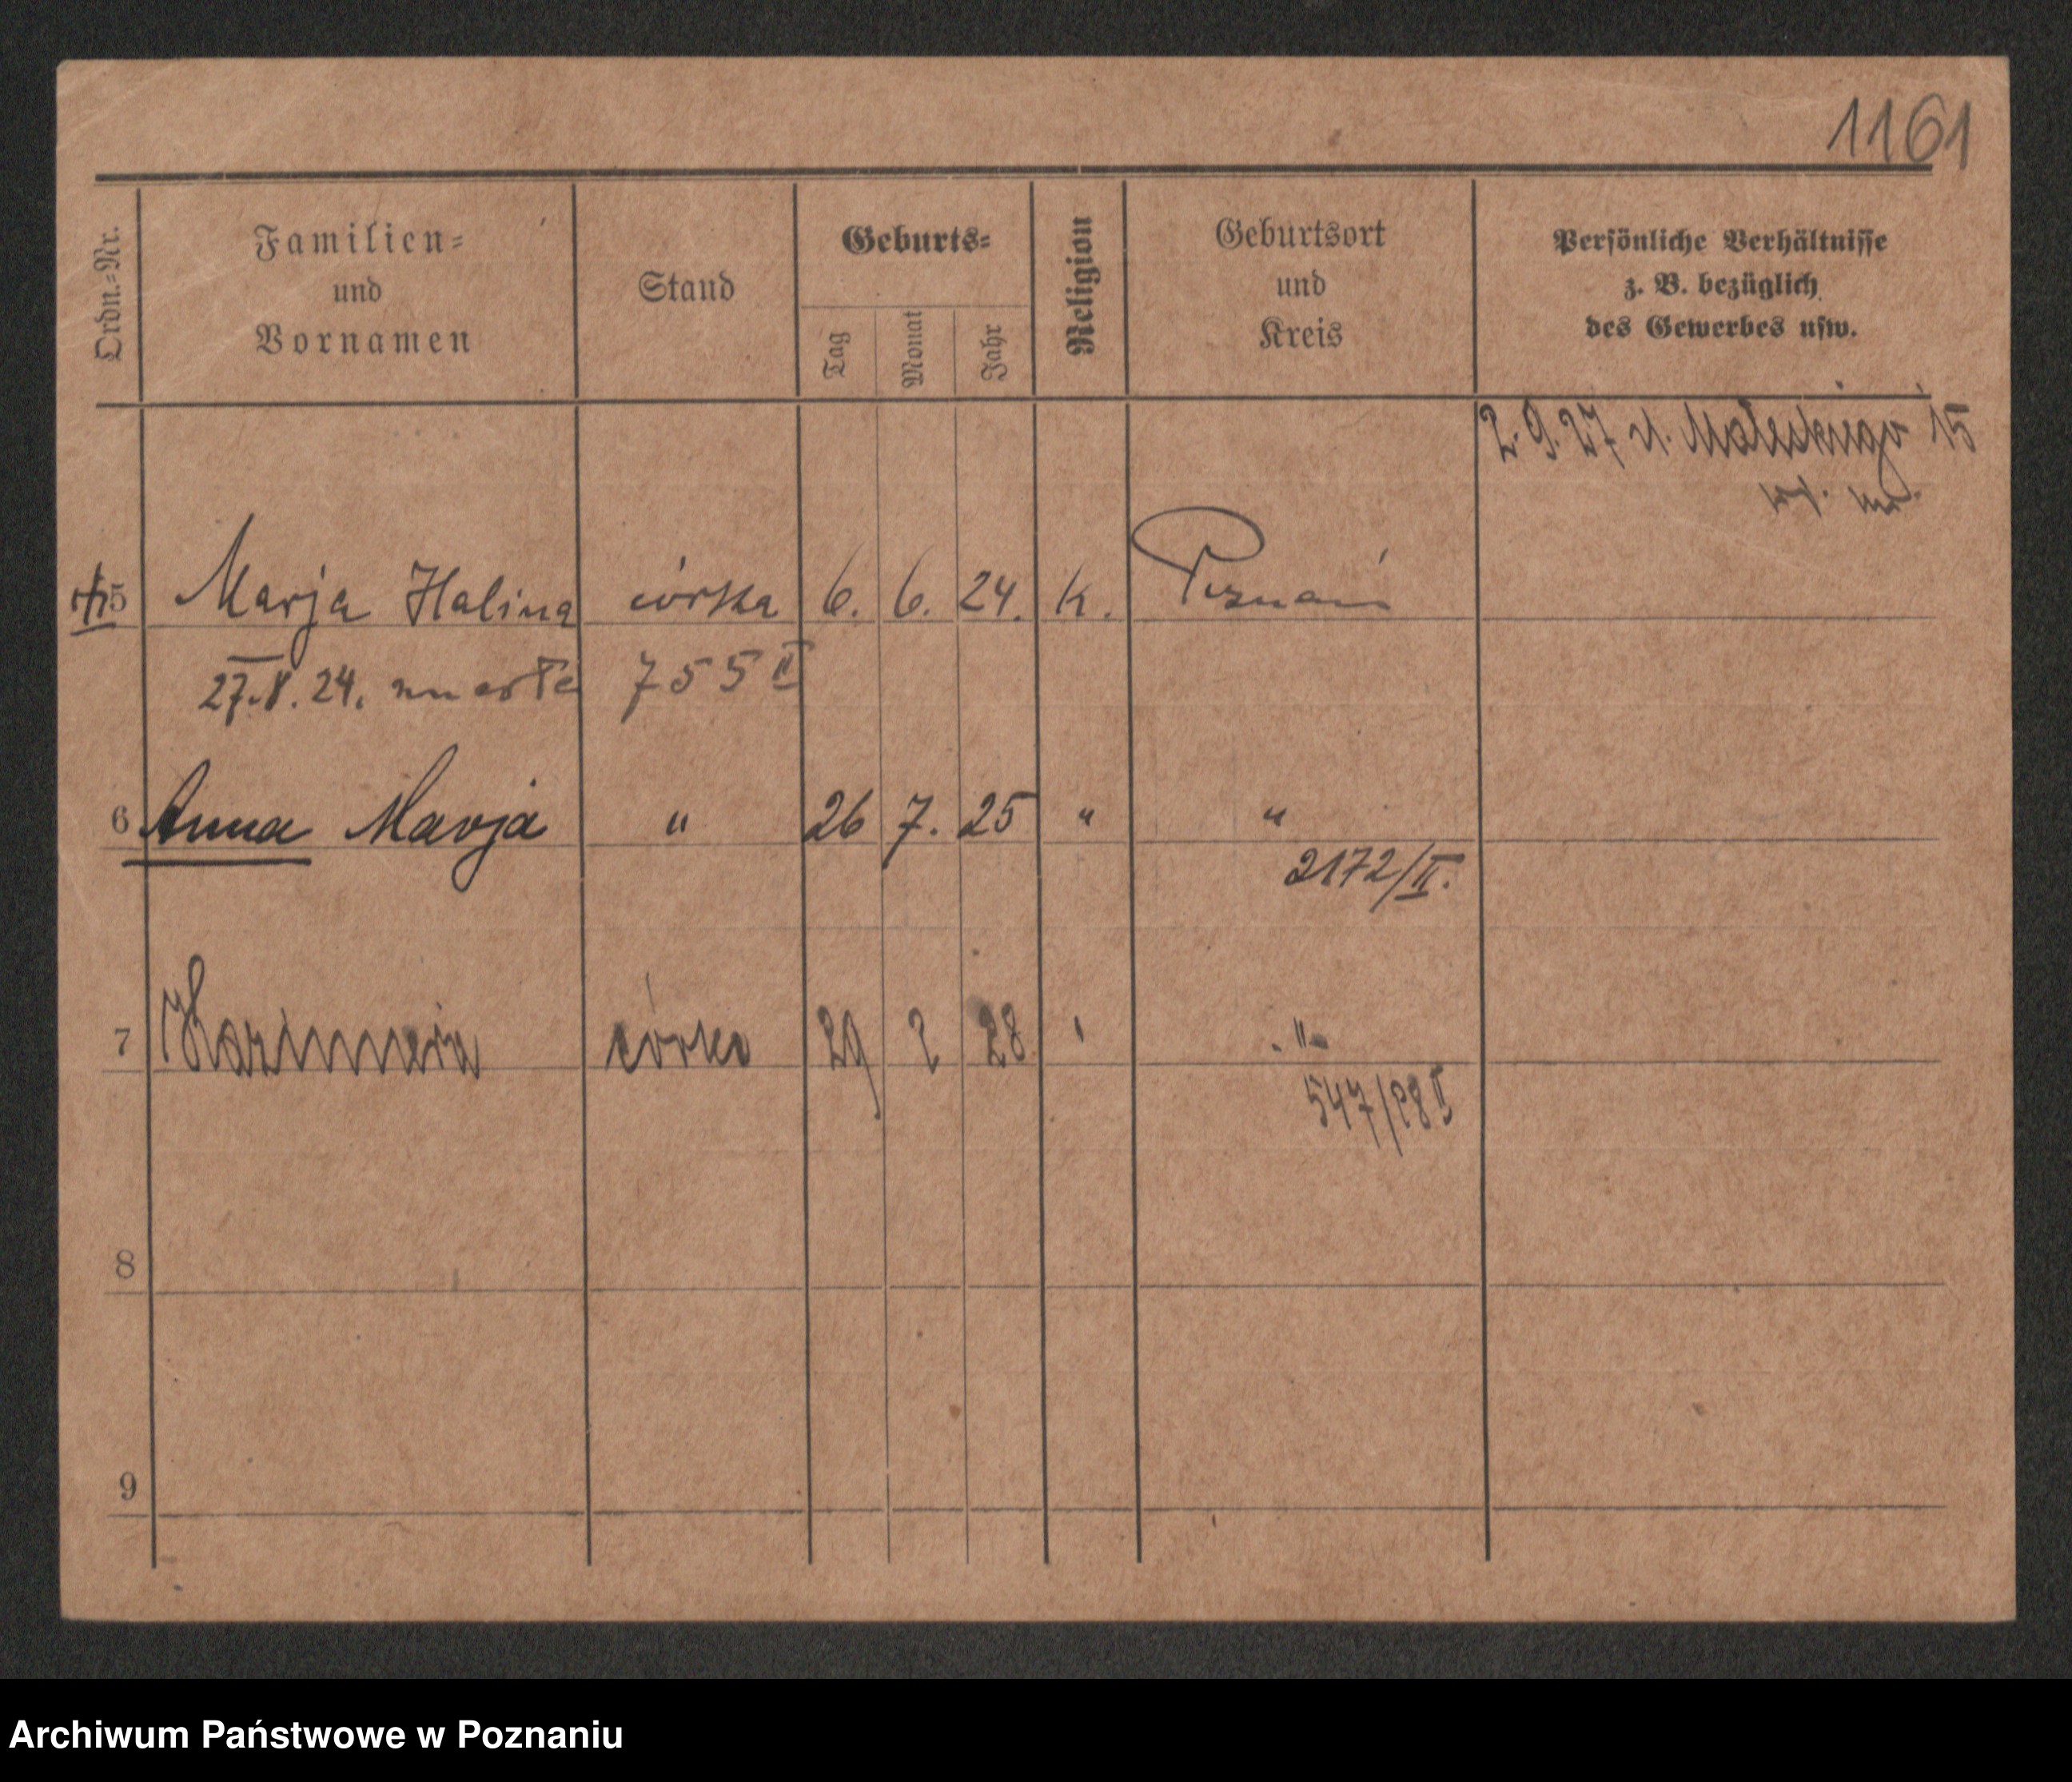 1161
Ordn.-Nr.
Familien-
und
Vornamen
Stand
Geburts-
Tag
Monat
Jahr
Religion
Geburtsort
und
Kreis
Persönliche Verhältnisse
z. B. bezüglich
des Gewerbes usw.
2.9.27 15
5 Marja Halina córka 6. 6. 24. k. Poznań
27.8.24. zmarła 755 II
6 Anna Marja " 26 7. 25 " "
2172/II.
7 Kazimiera córka 29 2 28 " "
547/28 II
8
9
Archiwum Państwowe w Poznaniu